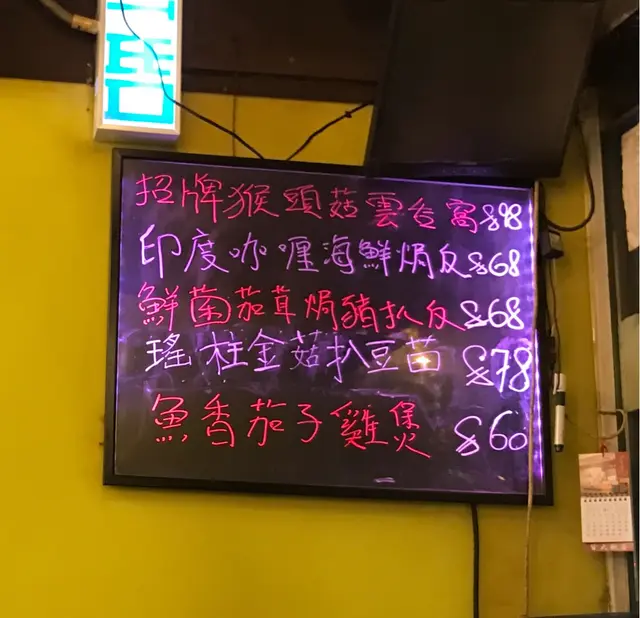 招牌猴頭菇雲吞窩 $98
印度咖喱海鮮焗反 $68
鮮菌茄茸焗豬扒反 $68
瑤柱金菇扒豆苗 $78
魚香茄子雞煲 $60